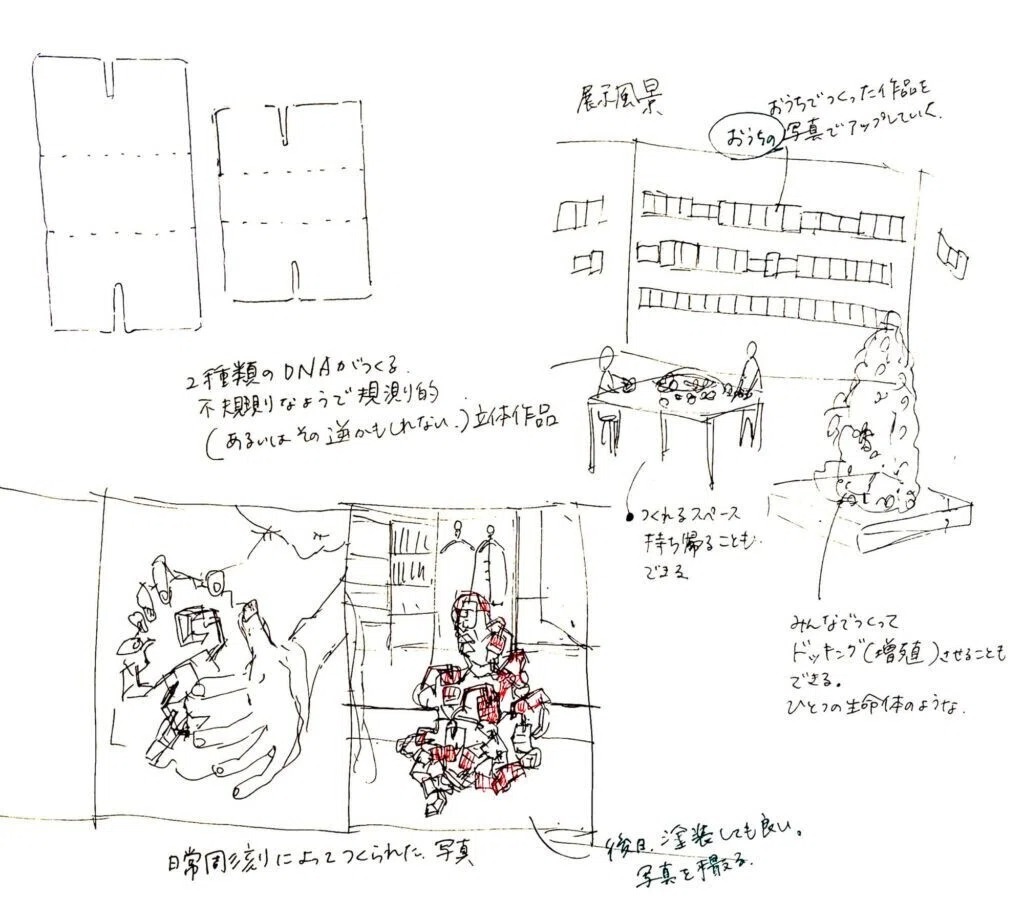 展示風景
おうちでつくった作品を
おうちの写真でアップしていく.
2種類のDNAがつくる.
不規則なようで規則的
(あるいはその逆かもしれない.)立体作品
つくれるスペース
持ち帰ることも.
できる
みんなでつくって
ドッキング(増殖)させることも
できる。
ひとつの生命体のような.
日常彫刻によってつくられた.写真
後日.塗装しても良い。
写真を撮る.